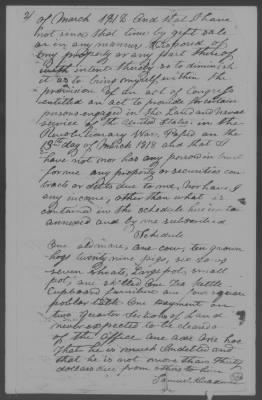 of March 1818 and that I have
not since that time by gift sale
or in any manner disposed of
my property or any part thereof
with intent thereby so to diminish
it as to bring myself within the
provision of an act of Congress
entitled an act to provide for certain
persons engaged in the Land and naval
service of the United States in the
Revolutionary War, Passed on the
18th day of March 1818 and that I
have not nor has any person in trust
for me any property or securities con
tracts or debts due to me, nor have I
any income, other than what is
contained in the schedule hereunto
annexed and by me subscribed
Schedule
One old mare, one cow, ten grown
hogs twenty nine pigs, six
seven shoats, large pot, small
pot, one skillet One Tea Kettle
Cupboard furniture one
One payment on
two quarter sections of Land
never expected to be cleared
of the office one axe one hoe
that he is much indebted and
that he is not more than thirty
dollars due from others to him
Samuel